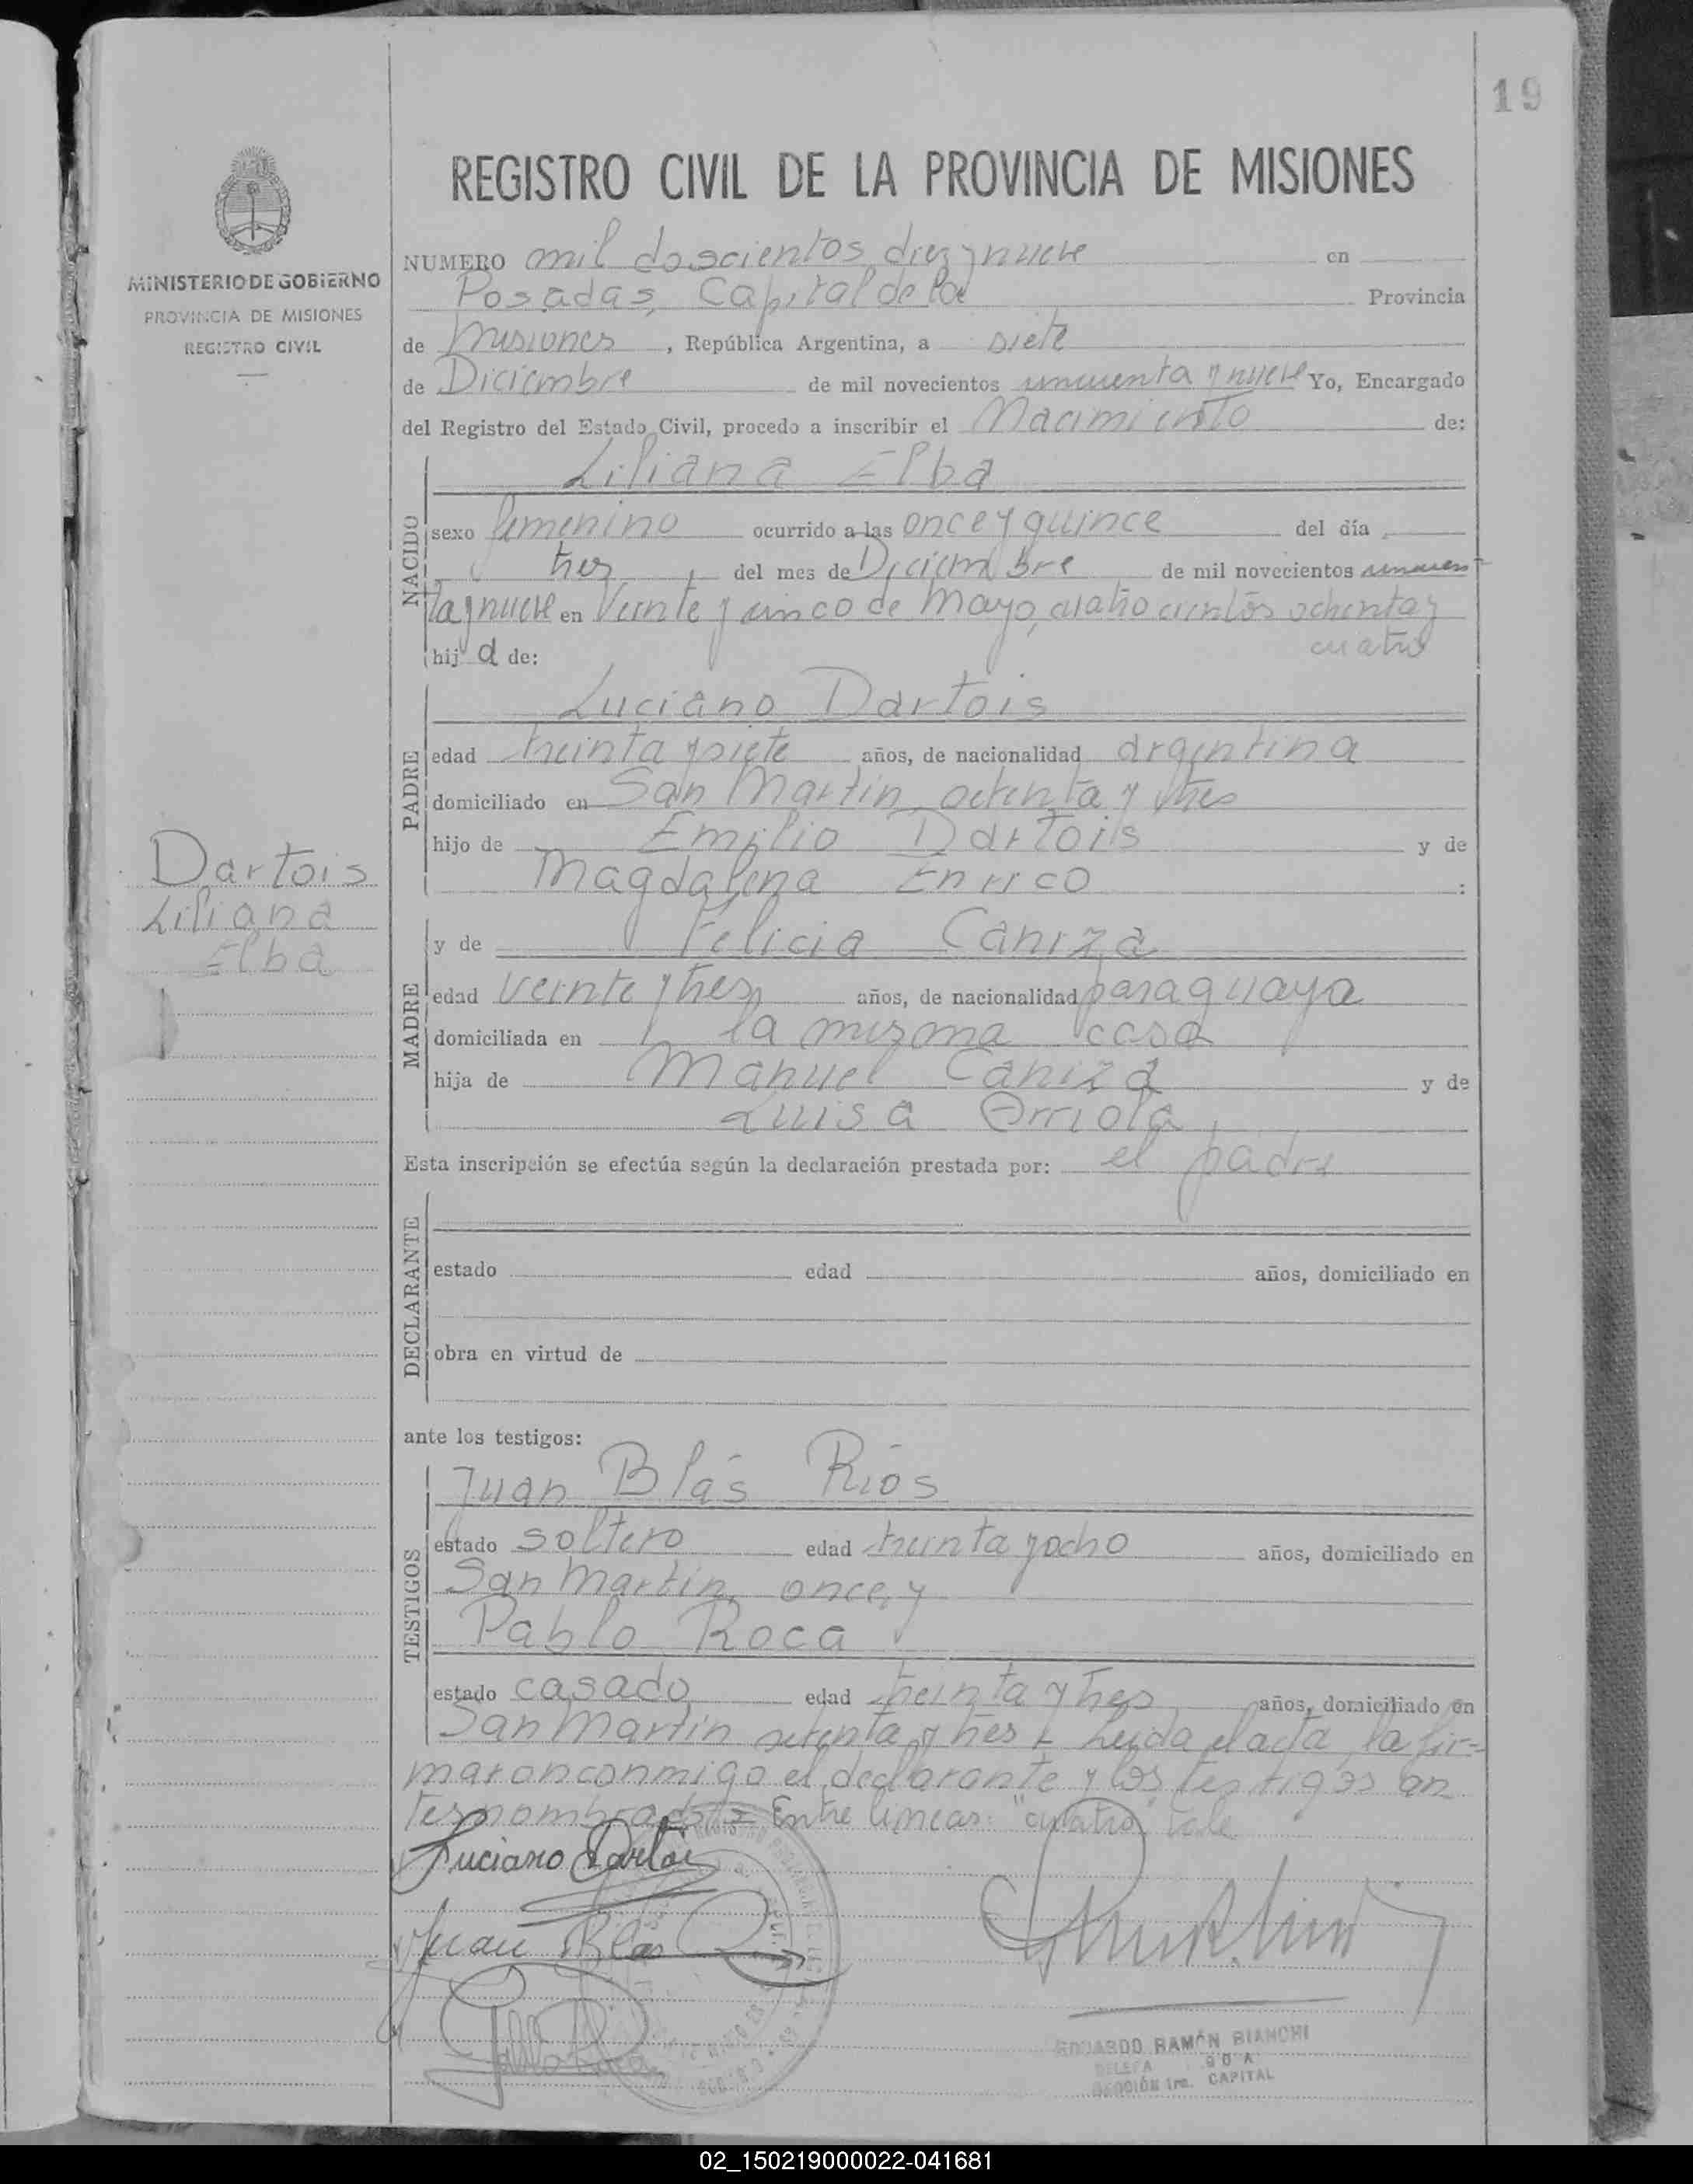 19
REGISTRO CIVIL DE LA PROVINCIA DE MISIONES
MINISTERIO DE GOBIERNO
PROVINCIA DE MISIONES
REGISTRO CIVIL
NUMERO mil doscientos diez y nueve en
Posadas, Capital de la Provincia
de Misiones, República Argentina, a siete
de Diciembre de mil novecientos cincuenta y nueve Yo, Encargado
del Registro del Estado Civil, procedo a inscribir el Nacimiento de:
NACIDO
Liliana Elba
sexo femenino ocurrido a las once y quince del día
tres, del mes de Diciembre de mil novecientos cincuen
ta y nueve en Veinte y cinco de Mayo, cuatro cientos ochenta y
cuatro
hija de:
PADRE
Luciano Dartois
edad treinta y siete años, de nacionalidad argentina
domiciliado en San Martin, setenta y tres
hijo de Emilio Dartois y de
Magdalena Enrico :
Dartois
Liliana
Elba
MADRE
y de Felicia Caniza
edad veinte y tres años, de nacionalidad paraguaya
domiciliada en la misma casa
hija de Manuel Caniza y de
Luisa Arriola
Esta inscripción se efectúa según la declaración prestada por: el padre
DECLARANTE
estado edad años, domiciliado en
obra en virtud de
ante los testigos:
TESTIGOS
Juan Blás Ríos
estado soltero edad treinta y ocho años, domiciliado en
San Martin, once, y
Pablo Roca
estado casado edad treinta y tres años, domiciliado en
San Martin setenta y tres. Leida el acta, la fir=
maron conmigo el declarante y los testigos an
tes nombrados = Entre lineas: "cuatro" Vale
Luciano Dartois
Juan Blas
EDUARDO RAMÓN BIANCHI
SECCIÓN 1ra. CAPITAL
02_150219000022-041681